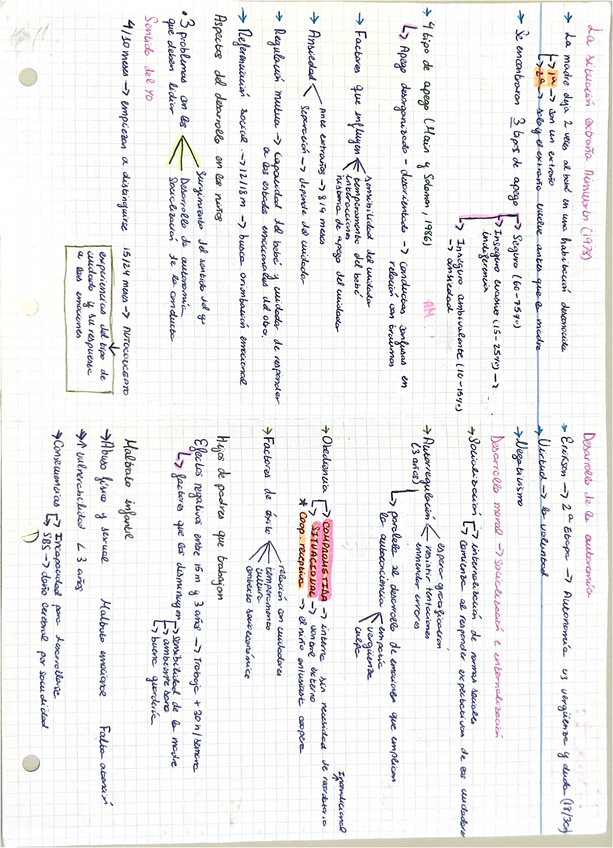 La situación extraña Ainsworth (1978)
→ La madre deja 2 veces al bebé en una habitación desconocida
↳ 1ª → con un extraño
↳ 2ª → sola y el extraño vuelve antes que la madre
→ Se encontraron 3 tipos de apego
↳ Seguro (60-75%)
↳ Inseguro evasivo (15-25%) → indiferencia
↳ Inseguro ambivalente (10-15%) → ansiedad
→ 4 tipo de apego (Main y Solomon, 1986)
↳ Apego desorganizado - desorientado → conductas confusas en
relación con
→ Factores que influyen
sensibilidad del cuidador
temperamento del bebé
interacción
historia de apego del cuidador
→ Ansiedad
Ante extraños → 8/9 meses
Separación → depende del cuidador
→ Regulación mutua → Capacidad del bebé y cuidador de responder
a los estados emocionales del otro.
→ Referenciación social → 12/18 m → busca orientación emocional
Aspectos del desarrollo en los niños
• 3 problemas con los
que deben lidiar
Surgimiento del sentido del yo
Desarrollo de autonomía
Socialización de la conducta
Sentido del yo
4/10 meses → empiezan a distinguirse
15/24 meses → AUTOCONCEPTO
experiencias del tipo de
cuidado y su respuesta
a las emociones
Desarrollo de la autonomía
→ Erikson → 2ª etapa → Autonomía vs vergüenza y duda (18/30)
→ Virtud → la voluntad
→ Negativismo
Desarrollo moral → socialización e internalización
→ Socialización
internalización de normas sociales
comienza al responder expectativas de los cuidadores
→ Autorregulación
(3 años)
esperar gratificación
resistir tentaciones
enmendar errores
↳ paralela al desarrollo de emociones que implican
la autoconciencia
empatía
vergüenza
culpa
→ Obediencia
COMPROMETIDA → interna sin necesidad de recordatorio
SITUACIONAL →
* Coop. receptiva → el niño entusiasta coopera
→ Factores de éxito
relación con cuidadores
temperamento
cultura
socioeconómico
Hijos de padres que trabajan
Efectos negativos entre 15 m y 3 años → trabaja + 30 h/semana
↳ factores que los disminuyen
sensibilidad de la madre
ambiente sano
buena guardería
Maltrato infantil
→ Abuso físico y sexual
Maltrato emocional
Falta atención
→ A vulnerabilidad < 3 años
→ Consecuencias
Incapacidad para desarrollarse
SBS → daño cerebral por sacudidas